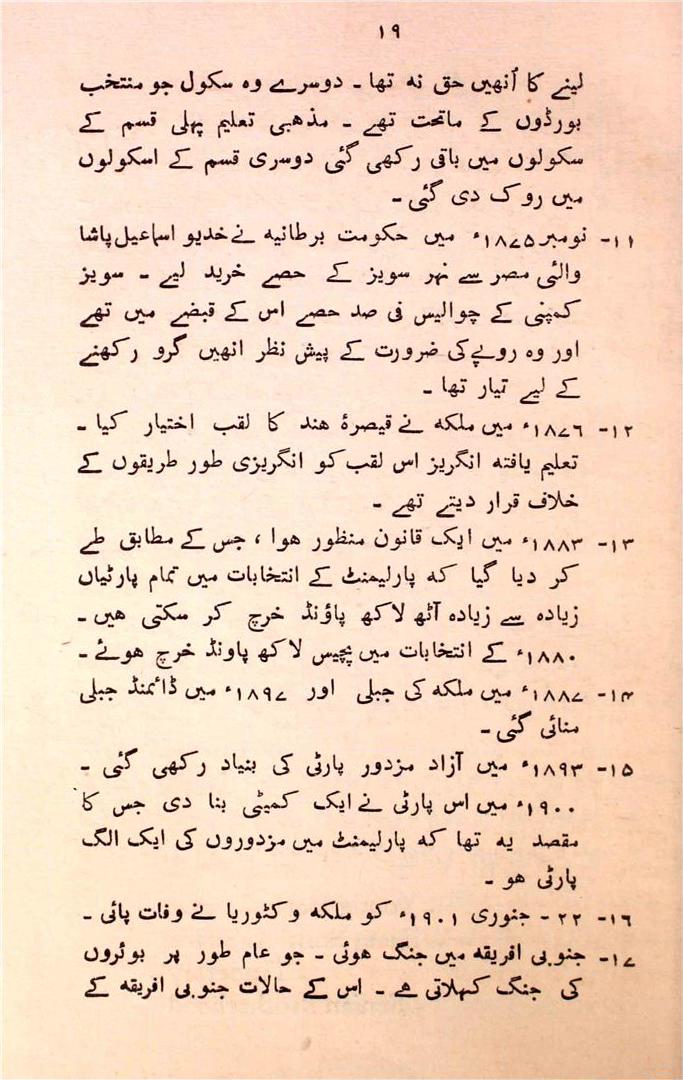 ۱۹
لینے کا اُنھیں حق نہ تھا ـ دوسرے وہ سکول جو منتخب
بورڈوں کے ماتحت تھے ـ مذھبی تعلیم پہلی قسم کے
سکولوں میں باقی رکھی گئی دوسری قسم کے اسکولوں
میں روک دی گئی ـ
۱۱- نومبر ۱۸۷۵ء میں حکومت برطانیہ نے خدیو اسماعیل پاشا
والئی مصر سے نہر سویز کے حصے خرید لیے ـ سویز
کمپنی کے چوالیس فی صد حصے اس کے قبضے میں تھے
اور وہ روپے کی ضرورت کے پیش نظر انھیں گرو رکھنے
کے لیے تیار تھا ـ
۱۲- ۱۸۷۶ء میں ملکہ نے قیصرۂ ھند کا لقب اختیار کیا ـ
تعلیم یافتہ انگریز اس لقب کو انگریزی طور طریقوں کے
خلاف قرار دیتے تھے ـ
۱۳- ۱۸۸۳ء میں ایک قانون منظور ھوا ، جس کے مطابق طے
کر دیا گیا کہ پارلیمنٹ کے انتخابات میں تمام پارٹیاں
زیادہ سے زیادہ آٹھ لاکھ پاؤنڈ خرچ کر سکتی ھیں ـ
۱۸۸۰ء کے انتخابات میں پچیس لاکھ پاونڈ خرچ ھوئے ـ
۱۴- ۱۸۸۷ء میں ملکہ کی جبلی اور ۱۸۹۷ء میں ڈائمنڈ جبلی
منائی گئی ـ
۱۵- ۱۸۹۳ء میں آزاد مزدور پارٹی کی بنیاد رکھی گئی ـ
۱۹۰۰ء میں اس پارٹی نے ایک کمیٹی بنا دی جس کا
مقصد یہ تھا کہ پارلیمنٹ میں مزدوروں کی ایک الگ
پارٹی ھو ـ
۱۶- ۲۲ - جنوری ۱۹۰۱ء کو ملکہ وکٹوریا نے وفات پائی ـ
۱۷- جنوبی افریقہ میں جنگ ھوئی ـ جو عام طور پر بوئروں
کی جنگ کہلاتی ھے ـ اس کے حالات جنوبی افریقہ کے